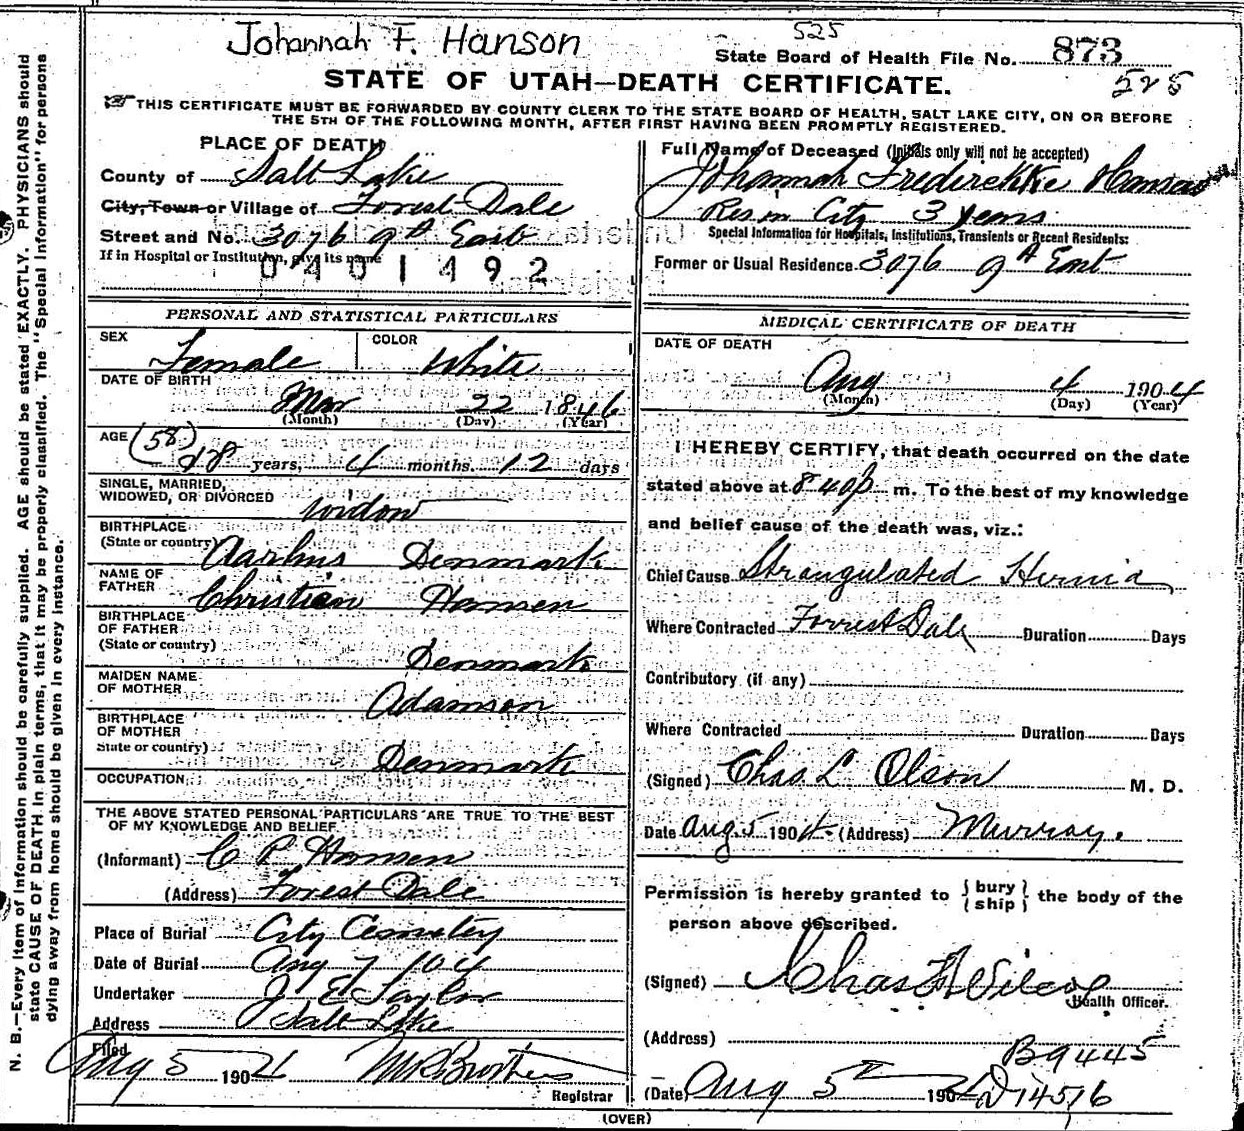 Johannah F. Hanson
525
State Board of Health File No. 873
STATE OF UTAH—DEATH CERTIFICATE.
525
THIS CERTIFICATE MUST BE FORWARDED BY COUNTY CLERK TO THE STATE BOARD OF HEALTH, SALT LAKE CITY, ON OR BEFORE
THE 5TH OF THE FOLLOWING MONTH, AFTER FIRST HAVING BEEN PROMPTLY REGISTERED.
PLACE OF DEATH
County of Salt Lake
City, Town or Village of Forest Dale
Street and No. 3076 9th East
If in Hospital or Institution, give its name
0401492
Full Name of Deceased (Initials only will not be accepted)
Johannah Frederekke Hansen
Res in City 3 years
Special Information for Hospitals, Institutions, Transients or Recent Residents:
Former or Usual Residence 3076 9th East
PERSONAL AND STATISTICAL PARTICULARS
SEX Female
COLOR White
DATE OF BIRTH
Mar 22 1846
(Month) (Day) (Year)
AGE (58)
48 years, 4 months. 12 days
SINGLE, MARRIED,
WIDOWED, OR DIVORCED Widow
BIRTHPLACE
(State or country) Aarhus Denmark
NAME OF
FATHER Christian Hansen
BIRTHPLACE
OF FATHER
(State or country) Denmark
MAIDEN NAME
OF MOTHER Adamson
BIRTHPLACE
OF MOTHER
State or country) Denmark
OCCUPATION
THE ABOVE STATED PERSONAL PARTICULARS ARE TRUE TO THE BEST
OF MY KNOWLEDGE AND BELIEF.
(Informant) C P Hansen
(Address) Forest Dale
Place of Burial City Cemetery
Date of Burial Aug 7 104
Undertaker J. E Taylor
Address Salt Lake
Filed
Aug 5 1904 Brothers
Registrar
MEDICAL CERTIFICATE OF DEATH
DATE OF DEATH
Aug 4 1904
(Month) (Day) (Year)
I HEREBY CERTIFY, that death occurred on the date
stated above at 8 40 p m. To the best of my knowledge
and belief cause of the death was, viz.:
Chief Cause Strangulated Hernia
Where Contracted Forrest Dale Duration Days
Contributory (if any)
Where Contracted Duration Days
(Signed) Chas L Olson M. D.
Date Aug. 5 1904. (Address) Murray.
Permission is hereby granted to {bury
ship} the body of the
person above described.
(Signed) Chas F Wilcox
Health Officer.
(Address)
B9445
(Date) Aug 5th 1904 D14516
(OVER)
N. B.—Every item of information should be carefully supplied. AGE should be stated EXACTLY. PHYSICIANS should
state CAUSE OF DEATH in plain terms, that it may be properly classified. The "Special Information" for persons
dying away from home should be given in every instance.